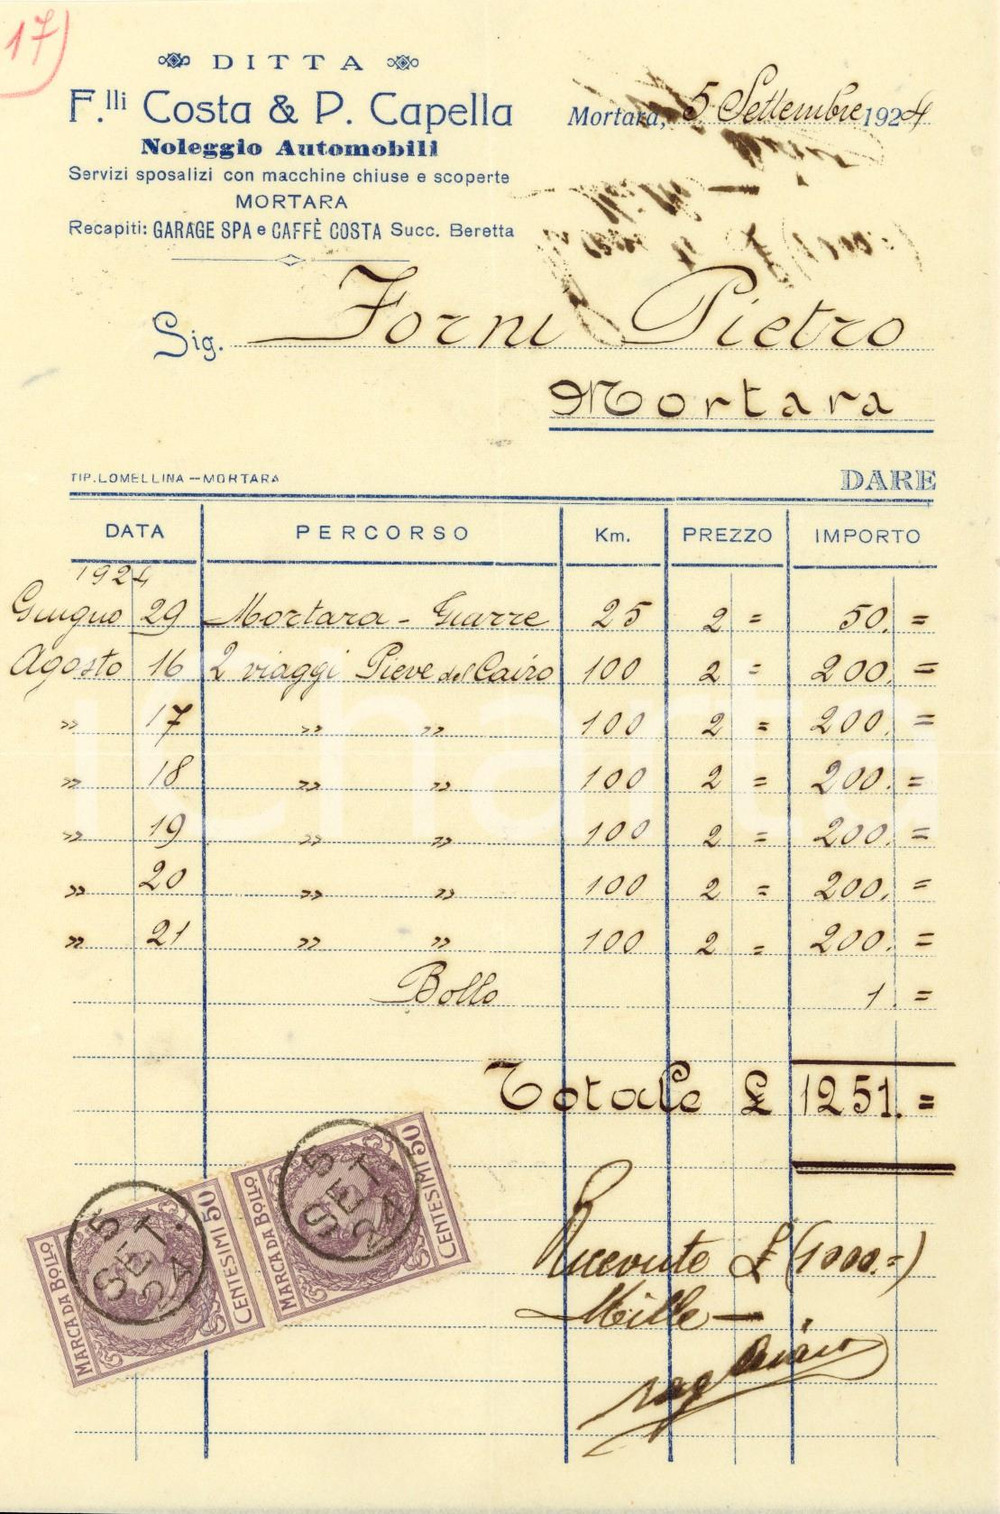 17)
DITTA
F.lli Costa & P. Capella
Noleggio Automobili
Servizi sposalizi con macchine chiuse e scoperte
MORTARA
Recapiti: GARAGE SPA e CAFFÈ COSTA Succ. Beretta
Mortara, 5 Settembre 1924
Sig. Forni Pietro
Mortara
TIP. LOMELLINA - MORTARA
DARE
DATA PERCORSO Km. PREZZO IMPORTO
1924
Giugno 29 Mortara - 25 2 = 50. =
Agosto 16 2 viaggi Pieve del Cairo 100 2 = 200. =
" 17 " " 100 2 = 200. =
" 18 " " 100 2 = 200. =
" 19 " " 100 2 = 200. =
" 20 " " 100 2 = 200. =
" 21 " " 100 2 = 200. =
Bollo 1. =
Totale £ 1251. =
MARCA DA BOLLO CENTESIMI 50
5 SET. 24
MARCA DA BOLLO CENTESIMI 50
5 SET. 24
Ricevuto £ (1000.=)
Mille —